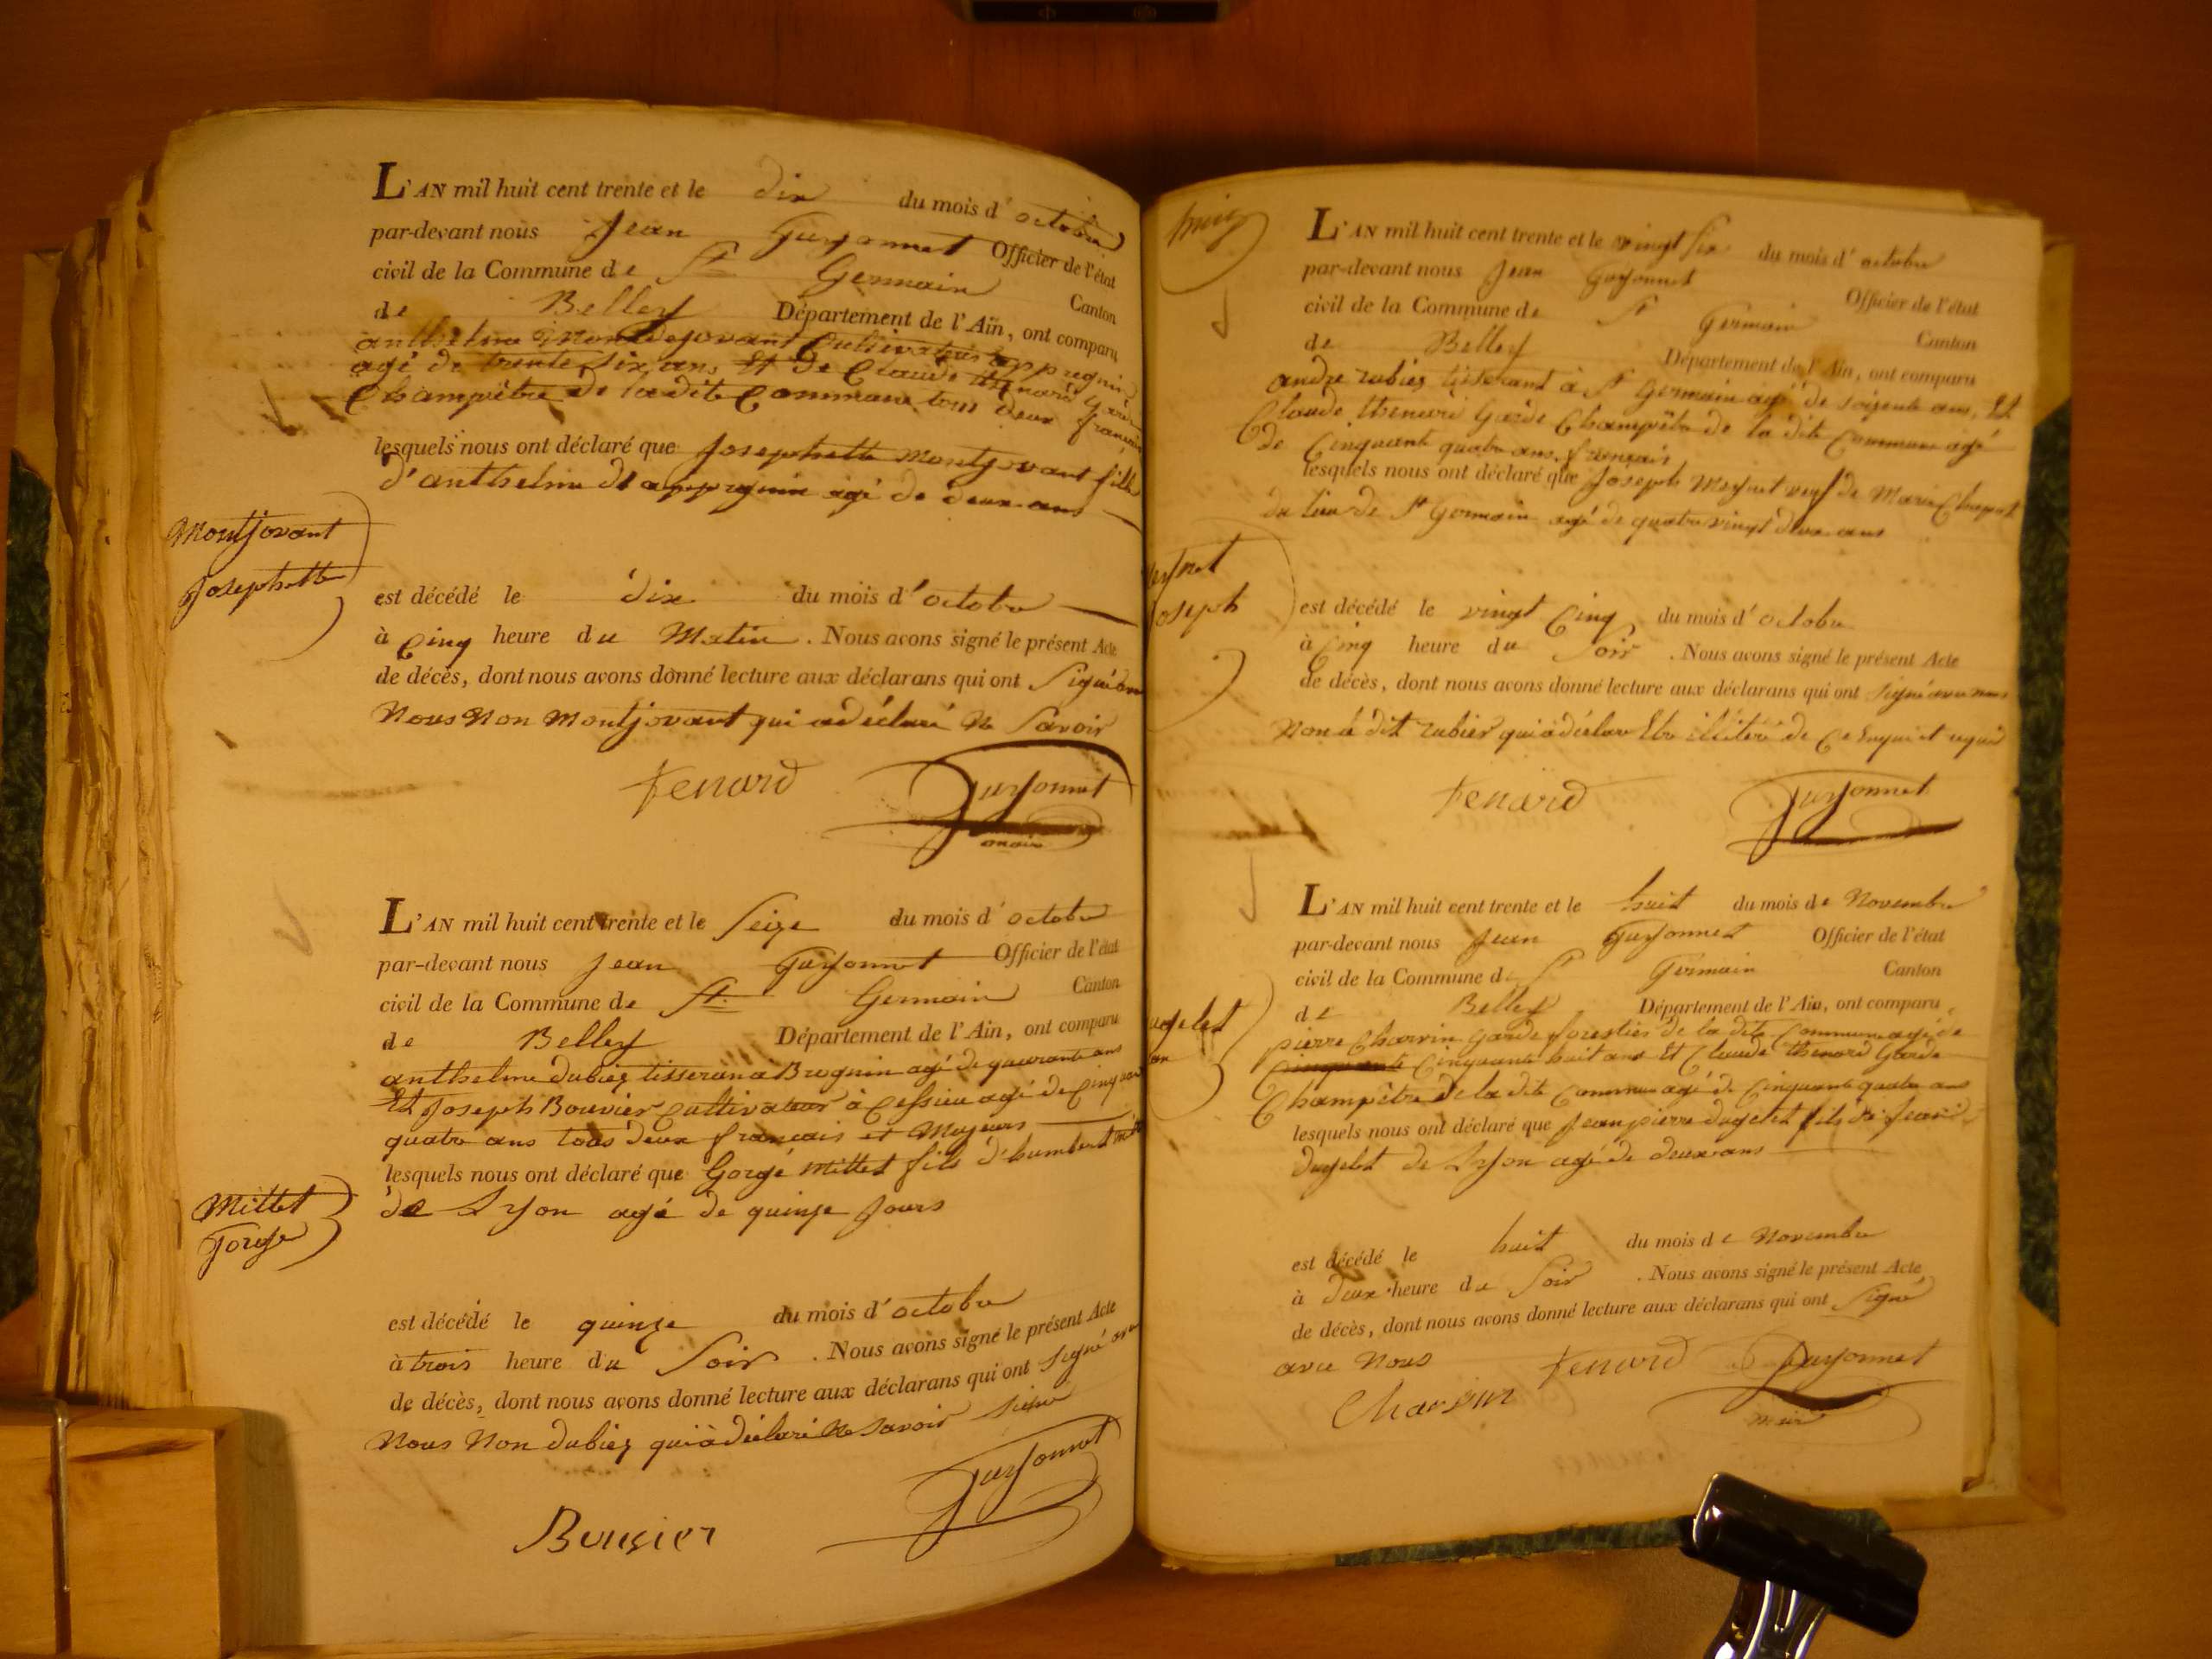 L'AN mil huit cent trente et le dix du mois d'octobre
par-devant nous Jean Guyonnet Officier de l'état
civil de la Commune de St Germain Canton
de Belley Département de l'Ain, ont comparu
anthelme Montjovant Cultivateur appregnin
agé de trente six ans Et de Claude thenard garde
Champêtre de la dite Commune tous deux français
lesquels nous ont déclaré que Josephette Montjovant fille
d'anthelme de appregnin agé de deux ans
Montjovant
Josephette
est décédé le dix du mois d'octobre
à Cinq heure du Matin. Nous avons signé le présent Acte
de décès, dont nous avons donné lecture aux déclarans qui ont Signé
Nous Non Montjovant qui a déclaré Ne Savoir
fenard Guyonnet
L'AN mil huit cent trente et le Seize du mois d'octobre
par-devant nous Jean Guyonnet Officier de l'état
civil de la Commune de St Germain Canton
de Belley Département de l'Ain, ont comparu
anthelme dubiez tisserand a Brognin agé de quarante ans
Et Joseph Bouvier Cultivateur à Cessieu agé de
quatre ans tous deux français et Majeurs
lesquels nous ont déclaré que Gorgé Mittet fils d'humbert
de Lyon agé de quinze Jours
Mittet
Gorge
est décédé le quinze du mois d'octobre
à trois heure du Soir. Nous avons signé le présent Acte
de décès, dont nous avons donné lecture aux déclarans qui ont signé
Nous Non dubiez qui à déclaré Ne Savoir
Guyonnet
Bouvier
L'AN mil huit cent trente et le vingt six du mois d'octobre
par-devant nous Jean Guyonnet Officier de l'état
civil de la Commune de St Germain Canton
de Belley Département de l'Ain, ont comparu
andre rubiez tisserant à St Germain agé de soisente ans, Et
Claude thenard Garde Champêtre de la dite Commune agé
de Cinquante quatre ans, français
lesquels nous ont déclaré que Joseph Meynet veuf de Marie
du lieu de St Germain agé de quatre vingt deux ans
oseph
est décédé le vingt Cinq du mois d'octobre
à Cinq heure du Soir. Nous avons signé le présent Acte
de décès, dont nous avons donné lecture aux déclarans qui ont signé avec nous
Non le dit rubier qui à déclaré Etre illitéré de Ce Enquis et requis
fenard Guyonnet
L'AN mil huit cent trente et le huit du mois de Novembre
par-devant nous Jean Guyonnet Officier de l'état
civil de la Commune de St Germain Canton
de Belley Département de l'Ain, ont comparu
pierre Charvin Garde forestier de la dite Commune agé de
Cinquante Cinquante huit ans Et Claude thenard Garde
Champêtre de la dite Commune agé de Cinquante quatre ans
lesquels nous ont déclaré que Jean pierre dugelet fils de Jean
dugelet de Lyon agé de deux ans
est décédé le huit du mois de Novembre
à deux heure du Soir. Nous avons signé le présent Acte
de décès, dont nous avons donné lecture aux déclarans qui ont Signé
avec Nous fenard Guyonnet
Charvin maire